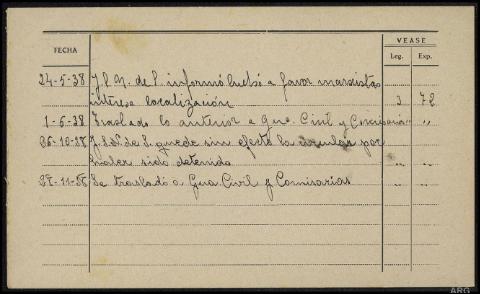 VEASE
FECHA
Leg. Exp.
24-5-38 J. S. N. de S. informó luchó a favor marxistas
interesa localización 3 72
1-6-38 Traslado lo anterior a Gua. Civil y Comisaria " "
26-10-38 J. S. N. de S. quede sin efecto la circular por
haber sido detenido " "
28-11-38 Se trasladó a Gua. Civil y Comisarias " "
ARG